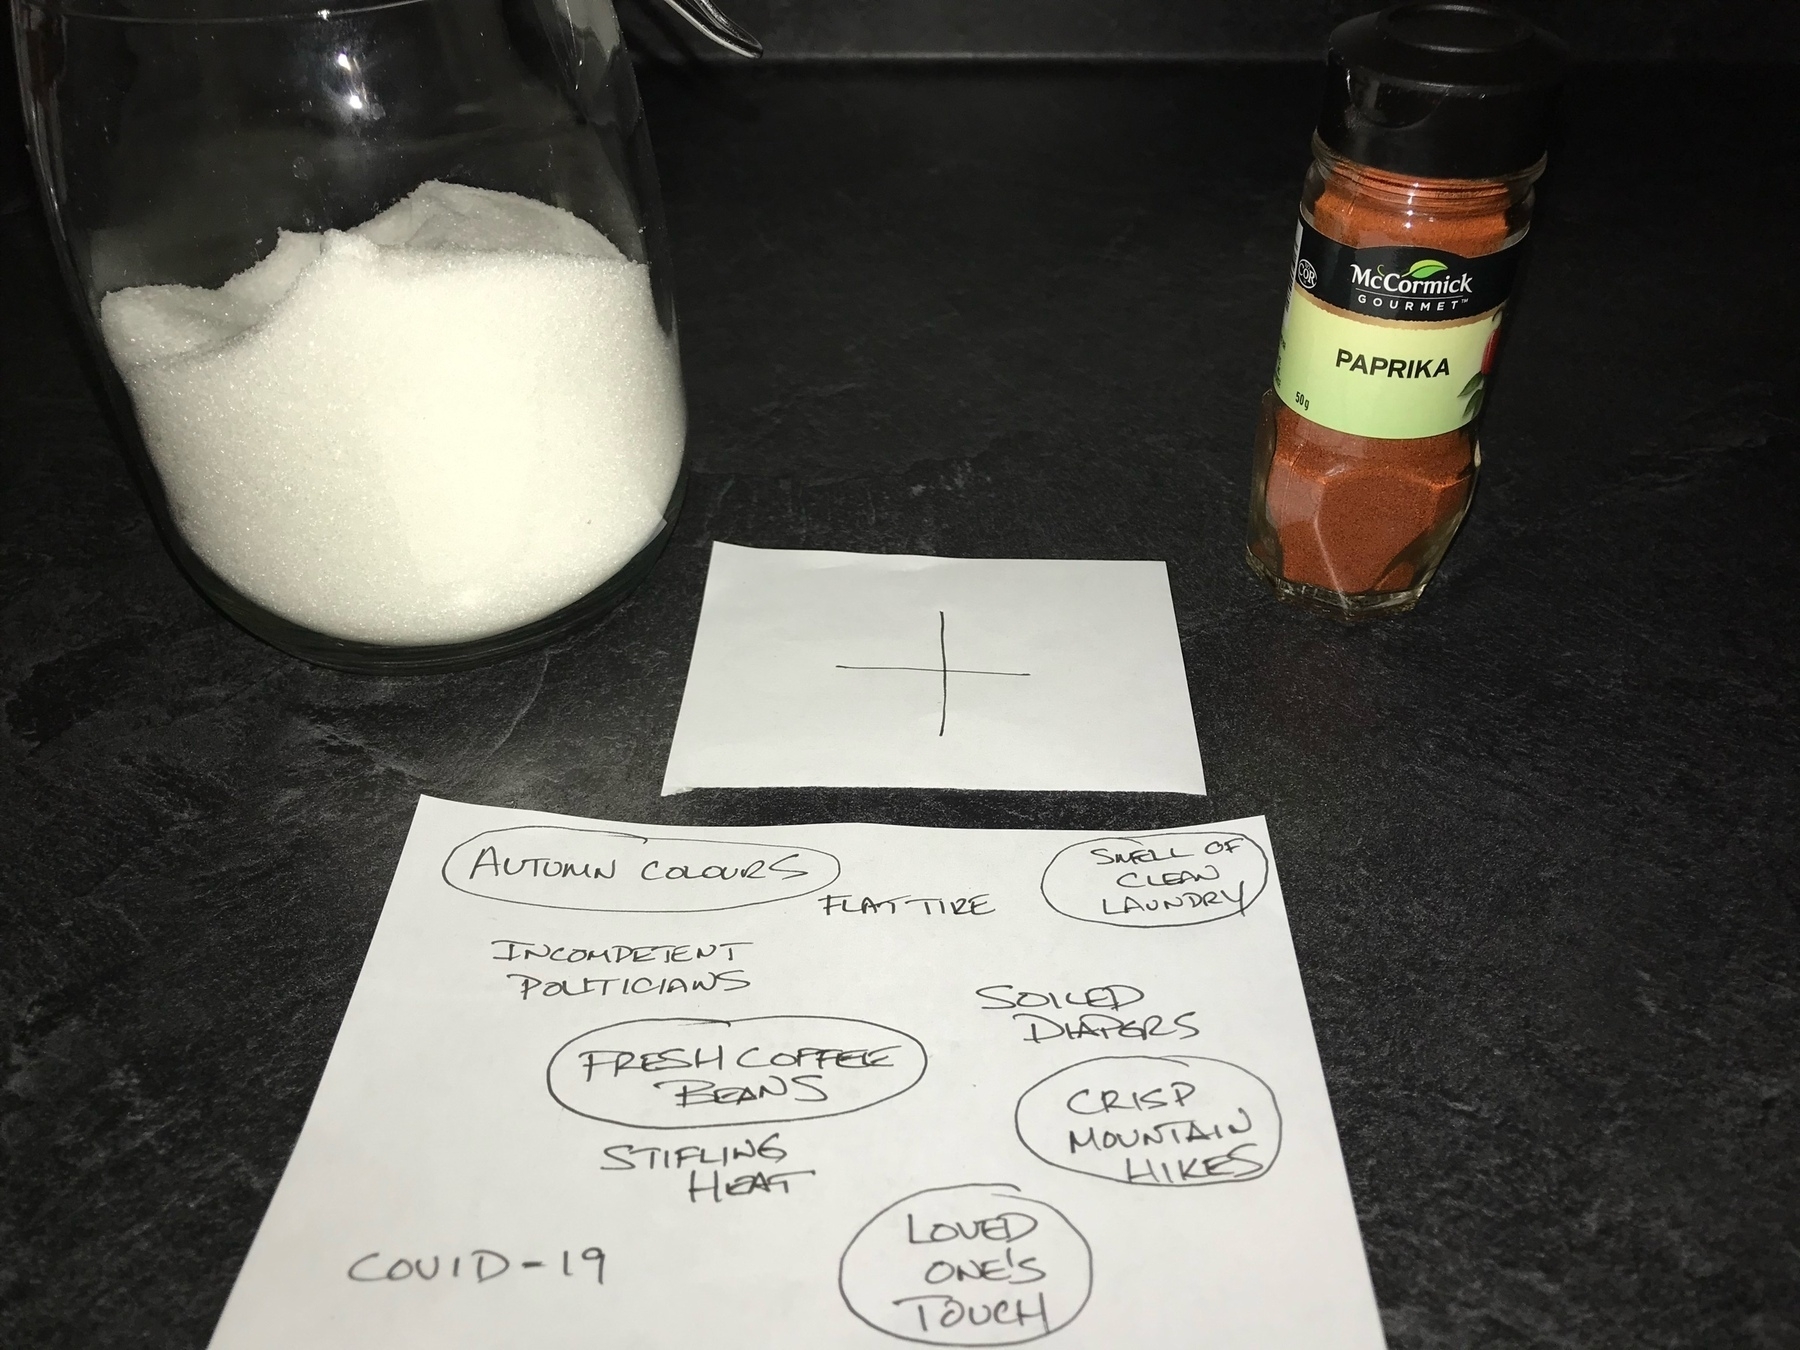 COR
McCormick
GOURMET™
PAPRIKA
50g
+
AUTUMN COLOURS
FLAT TIRE
SMELL OF
CLEAN
LAUNDRY
INCOMPETENT
POLITICIANS
SOILED
DIAPERS
FRESH COFFEE
BEANS
CRISP
MOUNTAIN
HIKES
STIFLING
HEAT
LOVED
ONE'S
TOUCH
COVID-19